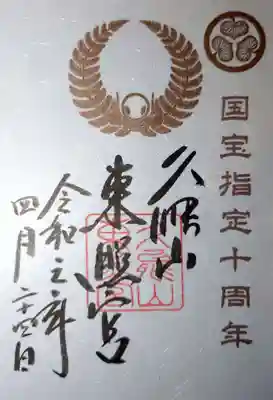 国宝指定十周年
久能山
東照宮
令和二年
四月二十四日